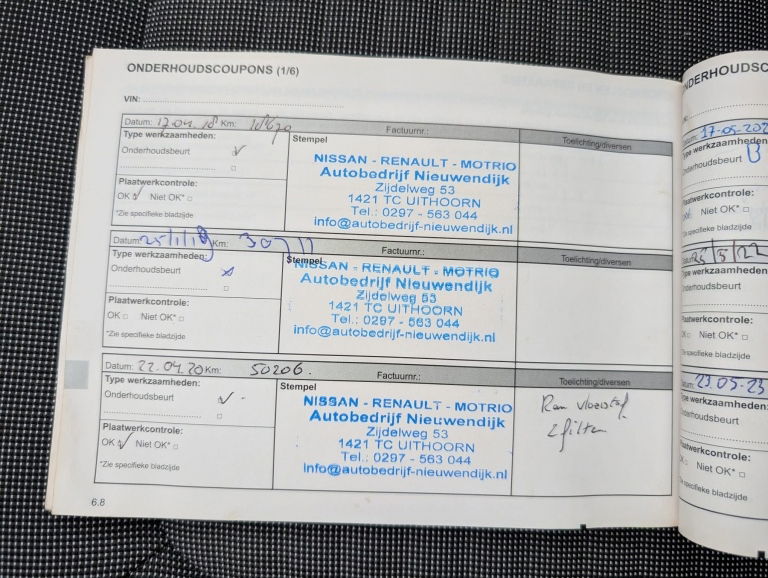 ONDERHOUDSCOUPONS (1/6)
VIN:
Datum: 17.04.18 Km: Factuurnr.: Toelichting/diversen
Type werkzaamheden: Stempel
Onderhoudsbeurt
Plaatwerkcontrole:
OK Niet OK*
*Zie specifieke bladzijde
NISSAN - RENAULT - MOTRIO
Autobedrijf Nieuwendijk
Zijdelweg 53
1421 TC UITHOORN
Tel.: 0297 - 563 044
info@autobedrijf-nieuwendijk.nl
Datum: 25/1/19 Km: 30711 Factuurnr.: Toelichting/diversen
Type werkzaamheden: Stempel
Onderhoudsbeurt
Plaatwerkcontrole:
OK Niet OK*
*Zie specifieke bladzijde
NISSAN - RENAULT - MOTRIO
Autobedrijf Nieuwendijk
Zijdelweg 53
1421 TC UITHOORN
Tel.: 0297 - 563 044
info@autobedrijf-nieuwendijk.nl
Datum: 22.04.20 Km: 50206. Factuurnr.: Toelichting/diversen
Type werkzaamheden: Stempel
Onderhoudsbeurt
Plaatwerkcontrole:
OK Niet OK*
*Zie specifieke bladzijde
NISSAN - RENAULT - MOTRIO
Autobedrijf Nieuwendijk
Zijdelweg 53
1421 TC UITHOORN
Tel.: 0297 - 563 044
info@autobedrijf-nieuwendijk.nl
Rem vloeistof
2 filters
6.8
NDERHOUDSC
17-05-202
ype werkzaamheden
nderhoudsbeurt
Plaatwerkcontrole:
Niet OK*
Zie specifieke bladzijde
25/5/22
Type werkzaamheden:
Onderhoudsbeurt
Plaatwerkcontrole:
Niet OK*
Zie specifieke bladzijde
23.05-23
Type werkzaamheden:
Onderhoudsbeurt
Plaatwerkcontrole:
Niet OK*
*Zie specifieke bladzijde